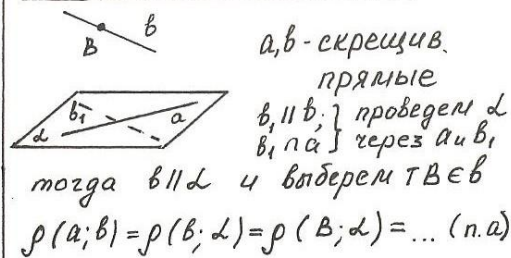 b
B
a, b - скрещив.
прямые
b₁ ∥ b; } проведем α
b₁ ∩ a } через a и b₁
b₁
a
α
тогда b ∥ α и выберем т B ∈ b
ρ(a; b) = ρ(b; α) = ρ(B; α) = ... (п.а)